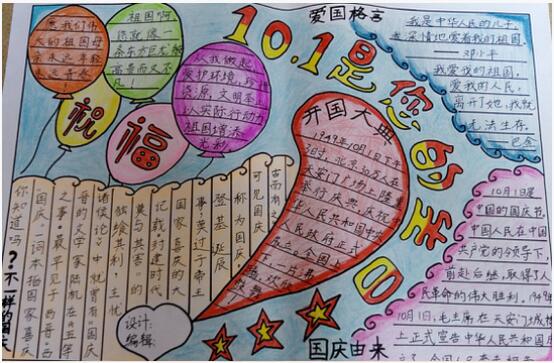 爱国格言
我们伟
大的祖国母
亲永远年轻
祖国啊
你就像
条东方巨龙般
高贵而又不
凡!
从我做起
爱护环境,
资源,文明
以实际行动
祖国增添
光彩
祝
福
10.1是您的生日
我是中华人民的儿子,
我深情地爱着我的祖国。
——邓小平
我爱我的祖国,
我爱我的人民,
离开了她,我就
无法生存。
——巴金
开国大典
1949年10月1日下午
3时,北京30万人在
天安门广场上隆重
举行庆典,庆祝中
华人民共和国中央
人民政府正式
成立。
你知道吗?不一样的国庆
"国庆"一词本指国家喜庆
之事,最早见于西晋
晋的文学家陆机在《五等
诸侯论》中就曾有"国庆
独擅其利,主忧
莫与其害"的
记载封建时代
国家喜庆的大
事,莫过于帝王
登基 诞辰
称为国庆
可见国庆
古而有之
设计:
编辑:
10月1日是
中国的国庆节。
中国人民在中国
共产党的领导下,
前赴后继,取得了人
民革命的伟大胜利,1949年
10月1日,毛主席在天安门城楼
上正式宣告中华人民共
国庆由来